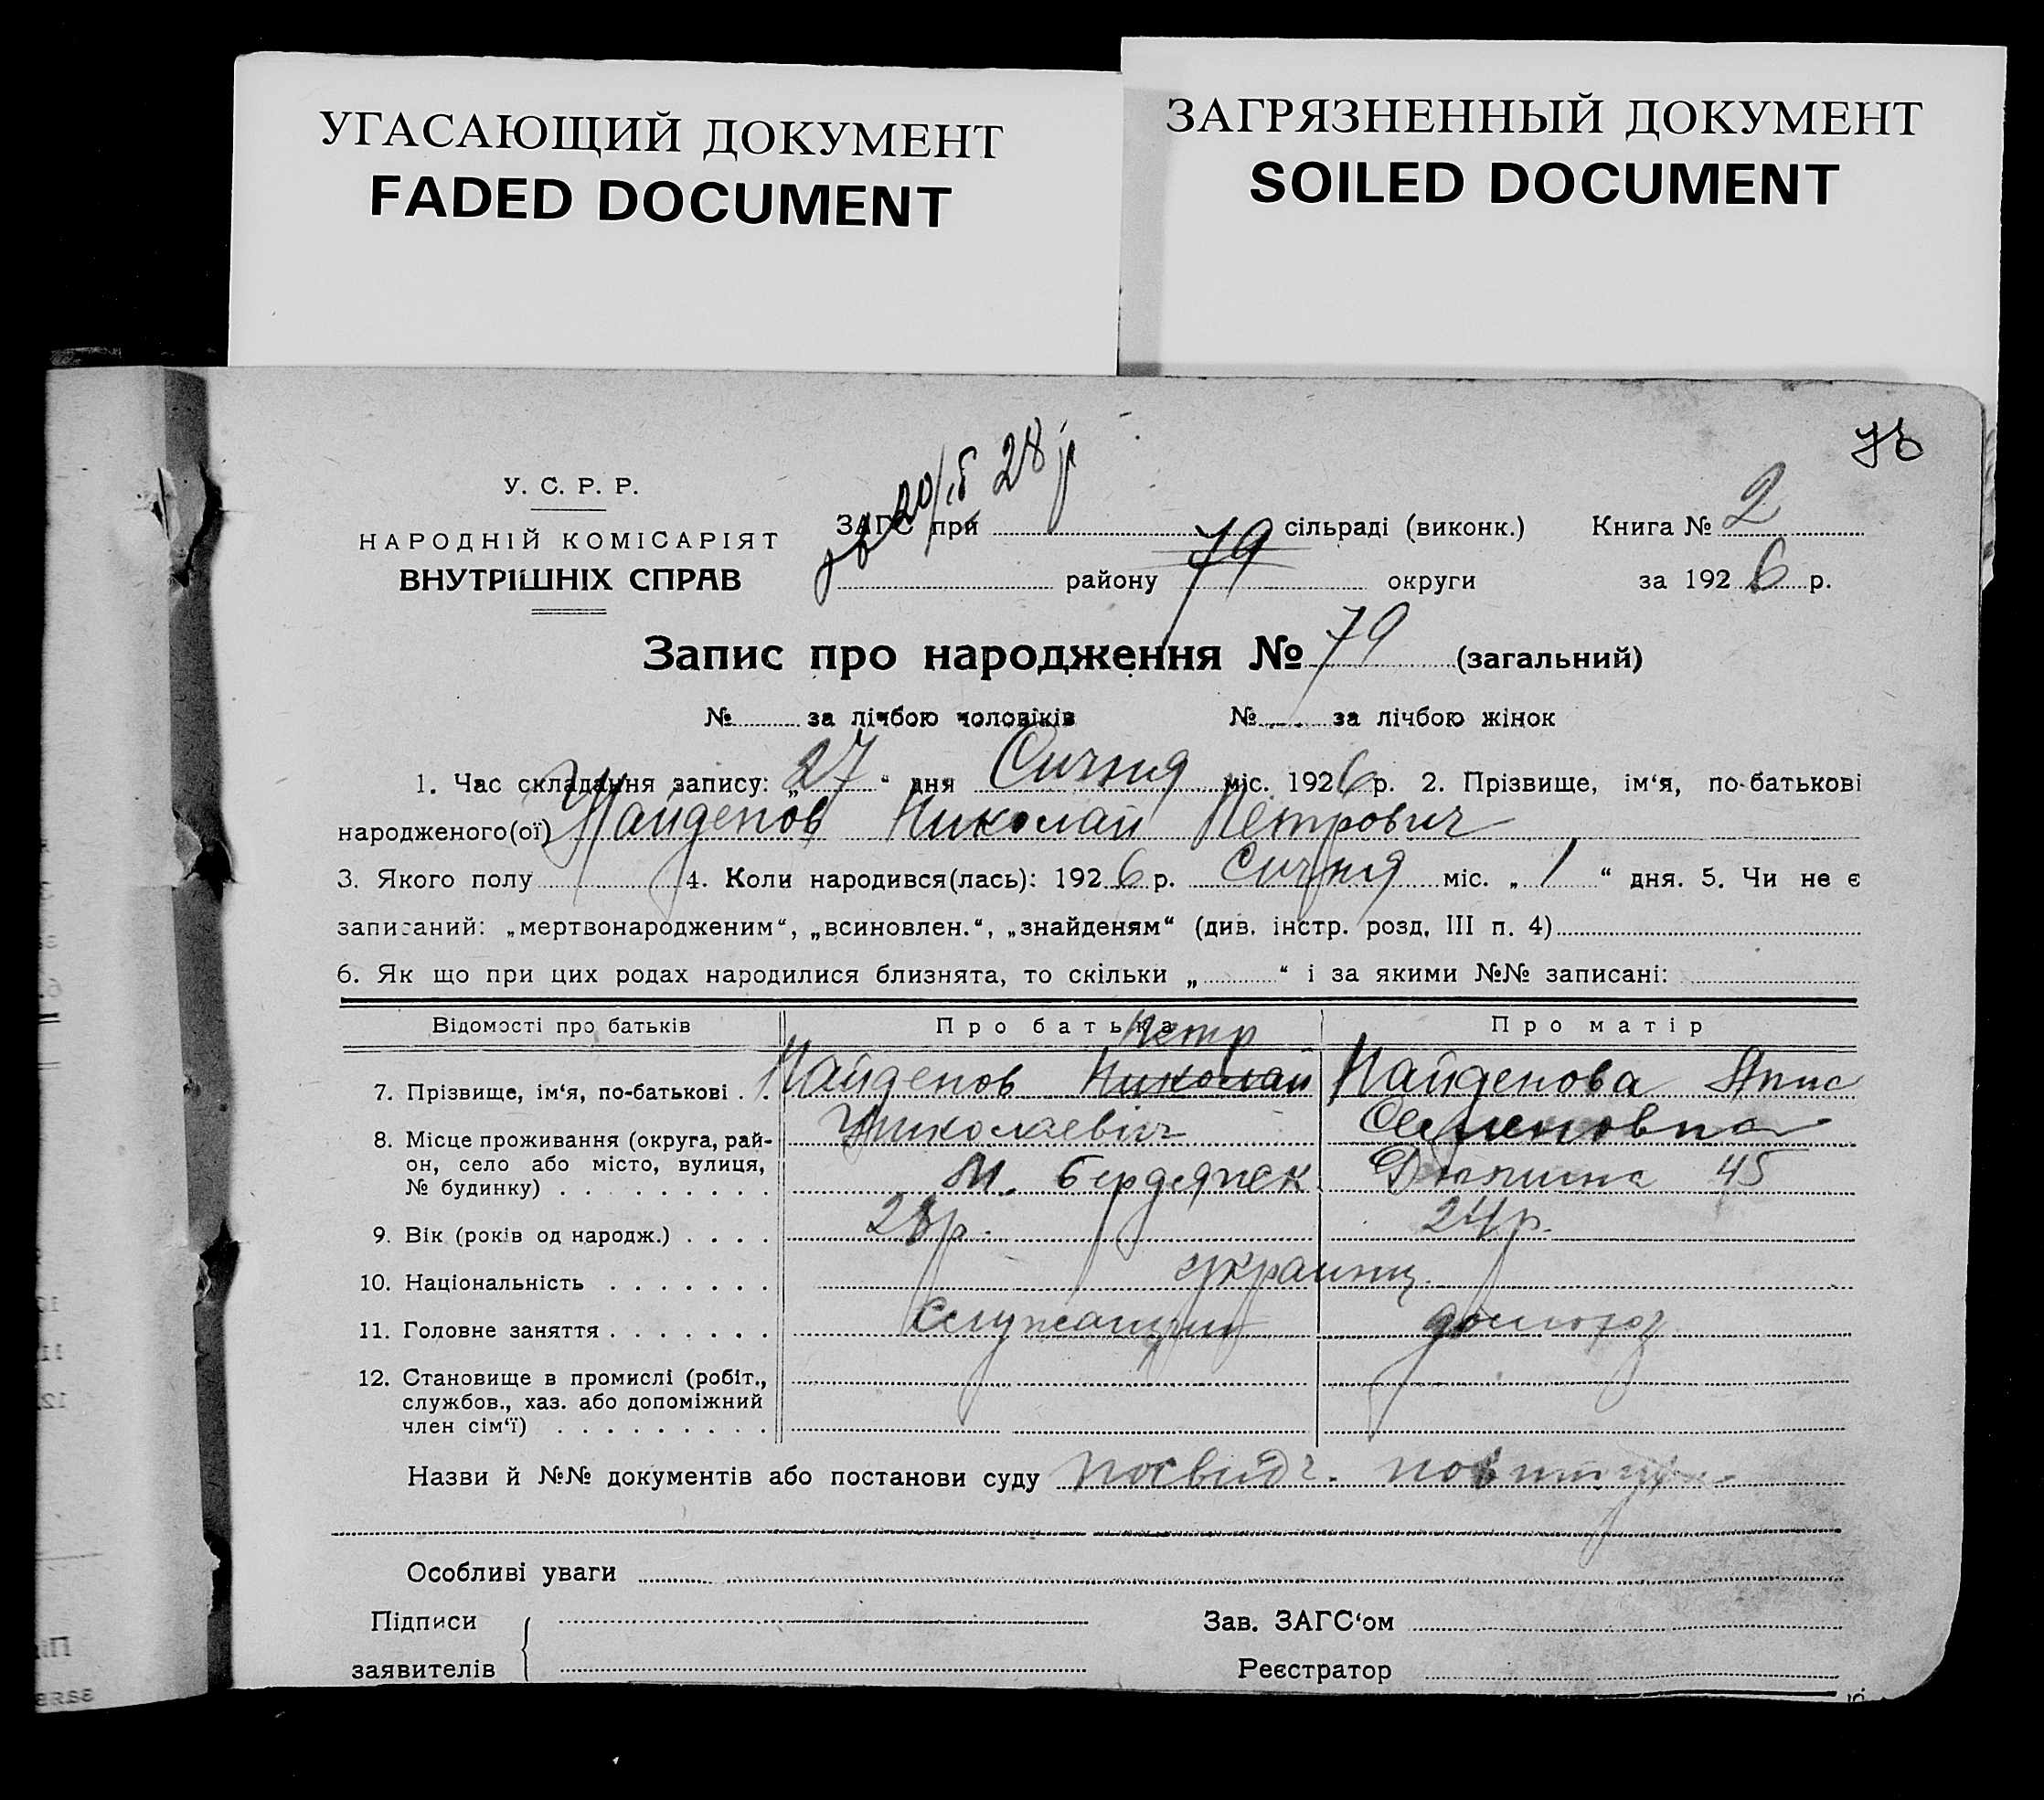 УГАСАЮЩИЙ ДОКУМЕНТ
FADED DOCUMENT
ЗАГРЯЗНЕННЫЙ ДОКУМЕНТ
SOILED DOCUMENT
У. С. Р. Р.
НАРОДНІЙ КОМІСАРІЯТ
ВНУТРІШНІХ СПРАВ
28 р
ЗАГС при сільраді (виконк.) Книга № 2
району 79 округи за 1926 р.
Запис про народження № 79 (загальний)
№ за лічбою чоловіків № за лічбою жінок
1. Час складання запису: „27“ дня Січня міс. 1926 р. 2. Прізвище, ім‘я, по-батькові
народженого(ої) Найденов Николай Петрович
3. Якого полу 4. Коли народився(лась): 1926 р. Січня міс. „1“ дня. 5. Чи не є
записаний: „мертвонародженим“, „всиновлен.“, „знайденям“ (див. інстр. розд. III п. 4)
6. Як що при цих родах народилися близнята, то скільки „ “ і за якими №№ записані:
Відомості про батьків Про батька Про матір
Петр
7. Прізвище, ім‘я, по-батькові . . Найденов Николай Найденова Анна
Николаевич Семеновна
8. Місце проживання (округа, рай-
он, село або місто, вулиця,
№ будинку) . . . . . . . . . м. Бердянск 45
9. Вік (років од народж.) . . . . 28 р. 24 р.
10. Національність . . . . . . . украинц.
11. Головне заняття . . . . . . . Служащий домохоз
12. Становище в промислі (робіт.,
службов., хаз. або допоміжний
член сім‘ї) . . . . . . . . .
Назви й №№ документів або постанови суду посвідч.
Особливі уваги
Підписи Зав. ЗАГС‘ом
заявителів Реєстратор